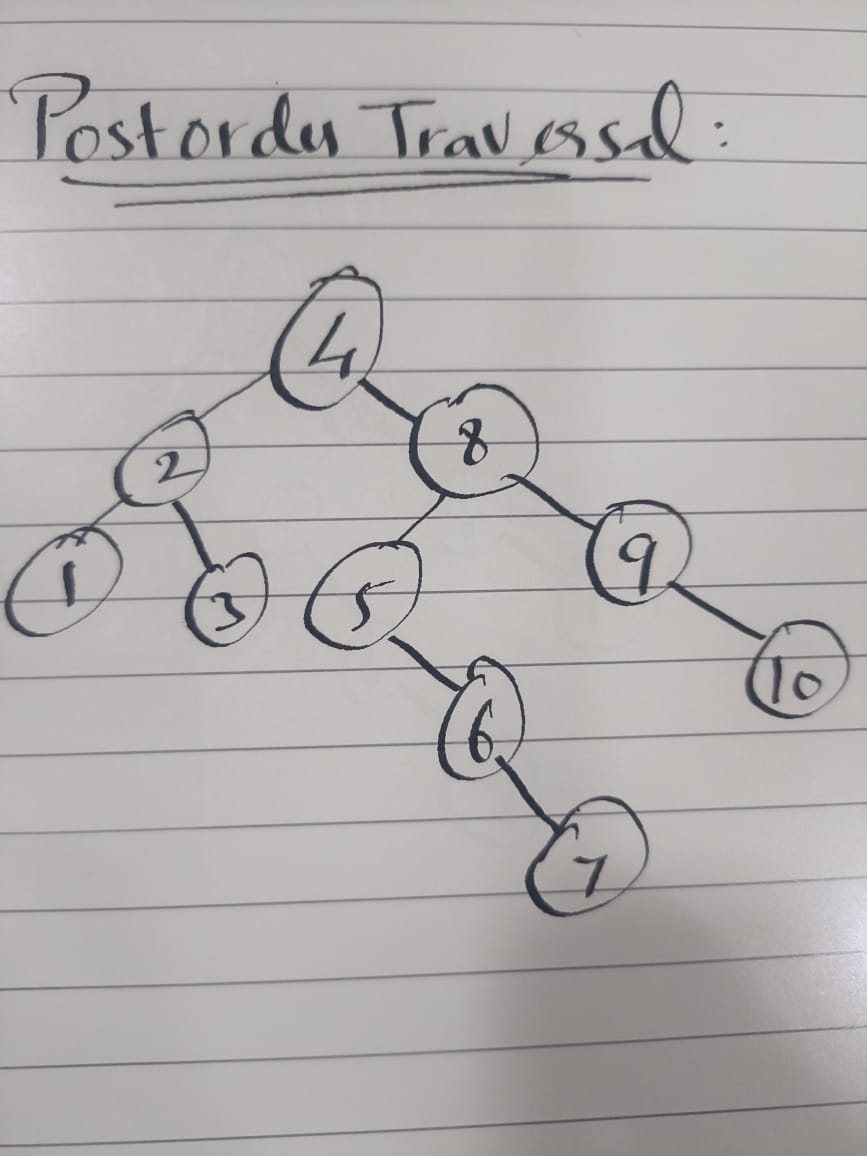 Postorder Traversal:
4
2 8
1 3 5 9
6 10
7